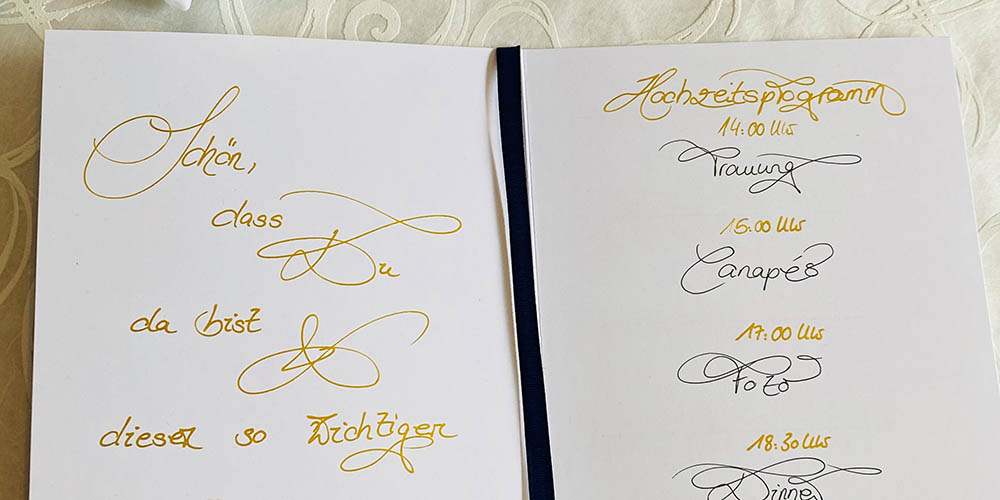 Schön,
dass
Du
da bist
&
dieser so wichtiger
Hochzeitsprogramm
14:00 Uhr
Trauung
15:00 Uhr
Canapés
17:00 Uhr
Foto
18:30 Uhr
Dinner